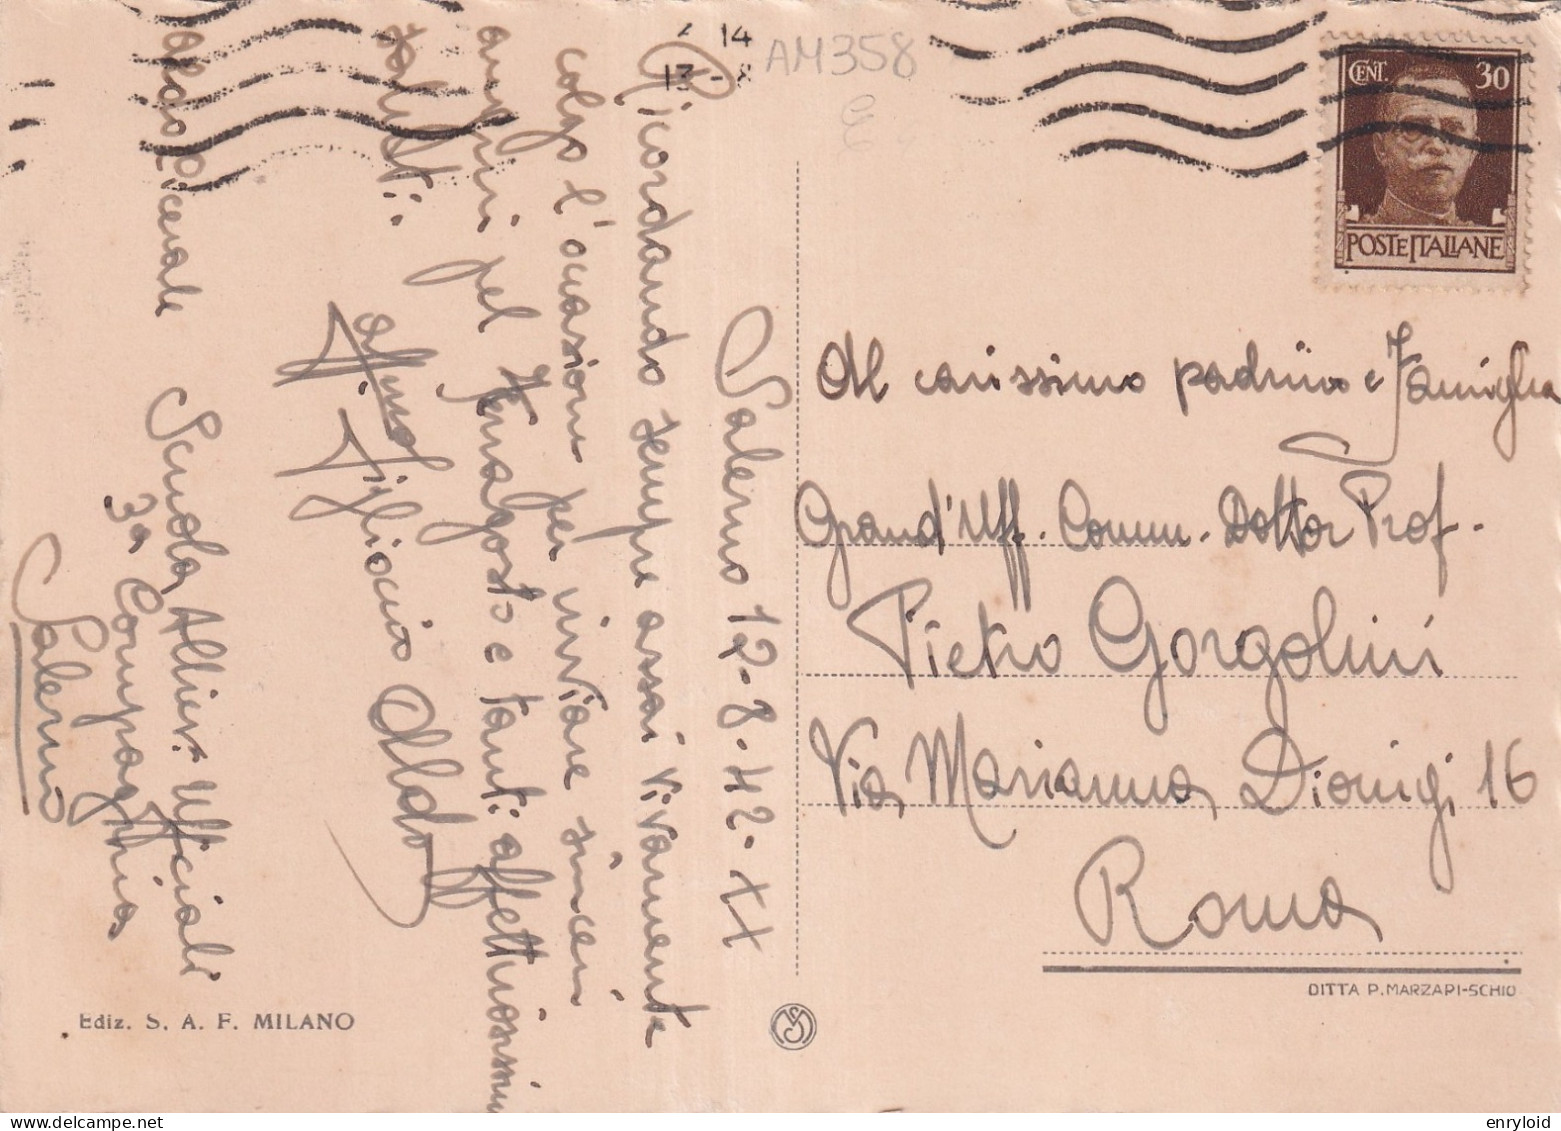 14
13-8
AM358
CENT. 30
POSTE ITALIANE
Salerno 12-8-42-XX
Ricordando sempre assai vivamente
colgo l'occasione per inviare sinceri
auguri pel Ferragosto e tanti affettuosissimi
saluti.
affmo figlioccio Aldo
Aldo Picenale Scuola Allievi Ufficiali
3ª Compagnia
Salerno
Al carissimo padrino e famiglia
Grand'Uff. Comm. Dottor Prof.
Pietro Gorgolini
Via Marianna Dionigi 16
Roma
DITTA P. MARZARI-SCHIO
Ediz. S. A. F. MILANO
enryloid